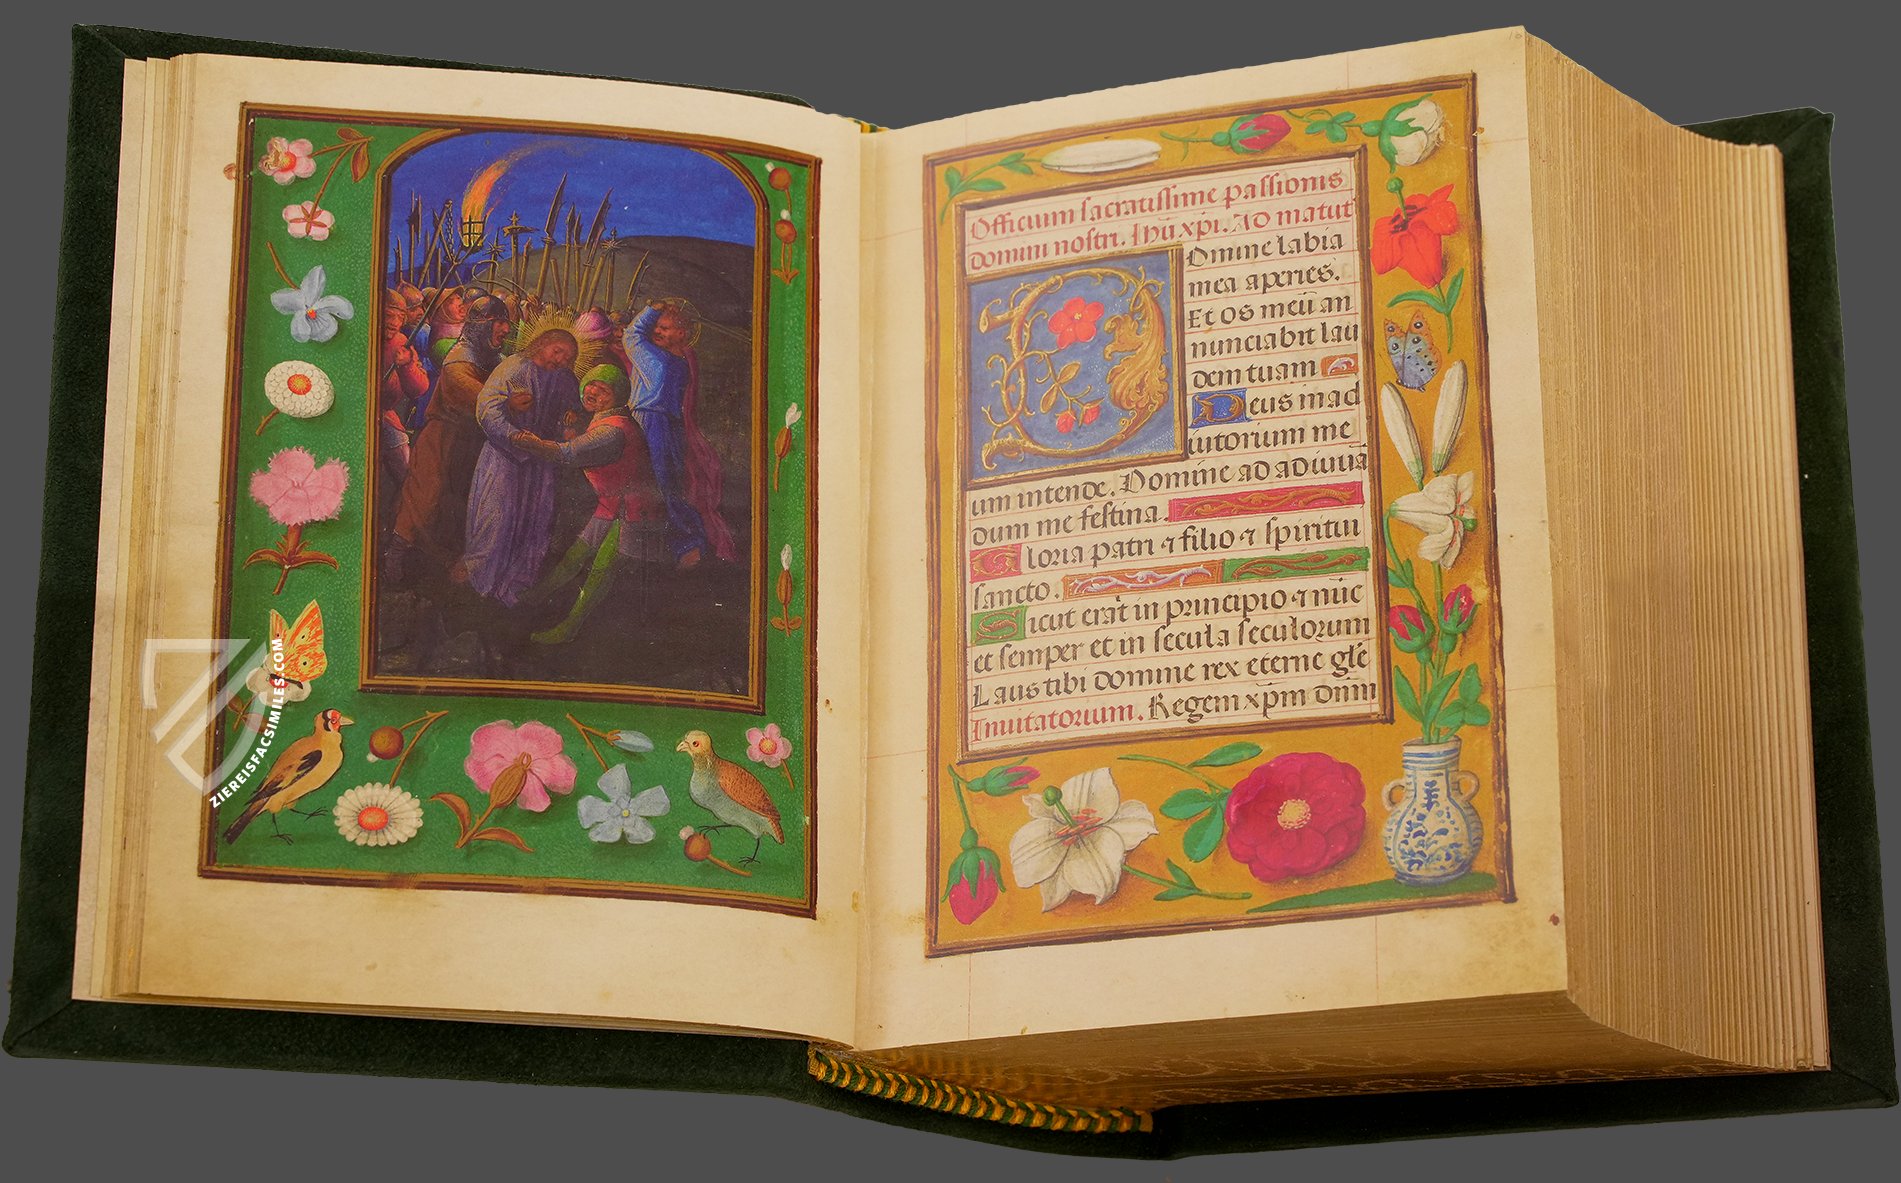 Officium sacratissime passionis
domini nostri. Ihū xpi. Ad matut̄
Domine labia
mea aperies.
Et os meū an
nunciabit lau
dem tuam
Deus in ad
iutorium me
um intende. Domine ad adiuuā
dum me festina.
Gloria patri ⁊ filio ⁊ spiritui
sancto.
Sicut erat in principio ⁊ nūc
et semper et in secula seculorum
Laus tibi domine rex eterne glē
Inuitatorium. Regem xpm dnm
ZIEREISFACSIMILES.COM